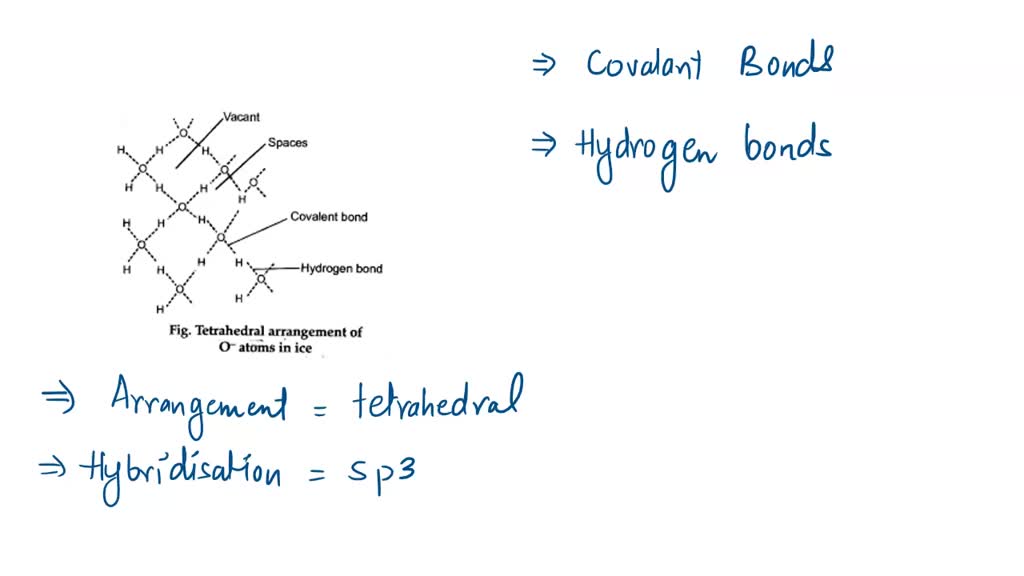 ⇒ Covalant Bonds
⇒ Hydrogen bonds
Vacant
Spaces
Covalent bond
Hydrogen bond
H H O H O O
H H H H
H H O H O
O H H H
H H O H
Fig. Tetrahedral arrangement of
O⁻ atoms in ice
⇒ Arrangement = tetrahedral
⇒ Hybridisation = sp3